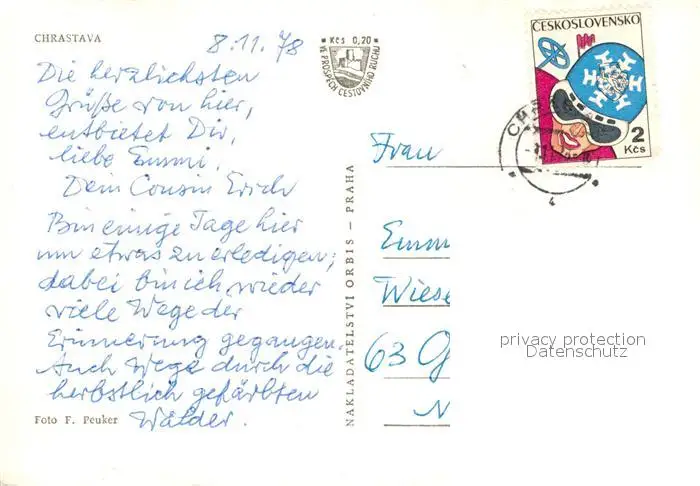 CHRASTAVA
8.11.78
Die herzlichsten
Grüße von hier,
entbietet Dir,
liebe Emmi,
Dein Cousin Erich
Bin einige Tage hier
um etwas zu erledigen;
dabei bin ich wieder
viele Wege der
Erinnerung gegangen.
Auch Wege durch die
herbstlich gefärbten
Wälder.
Foto F. Peuker
Kčs 0,20
VE PROSPĚCH CESTOVNÍHO RUCHU
NAKLADATELSTVÍ ORBIS — PRAHA
ČESKOSLOVENSKO
2
Kčs
Frau
Emm
Wiese
63 G
N
privacy protection
Datenschutz